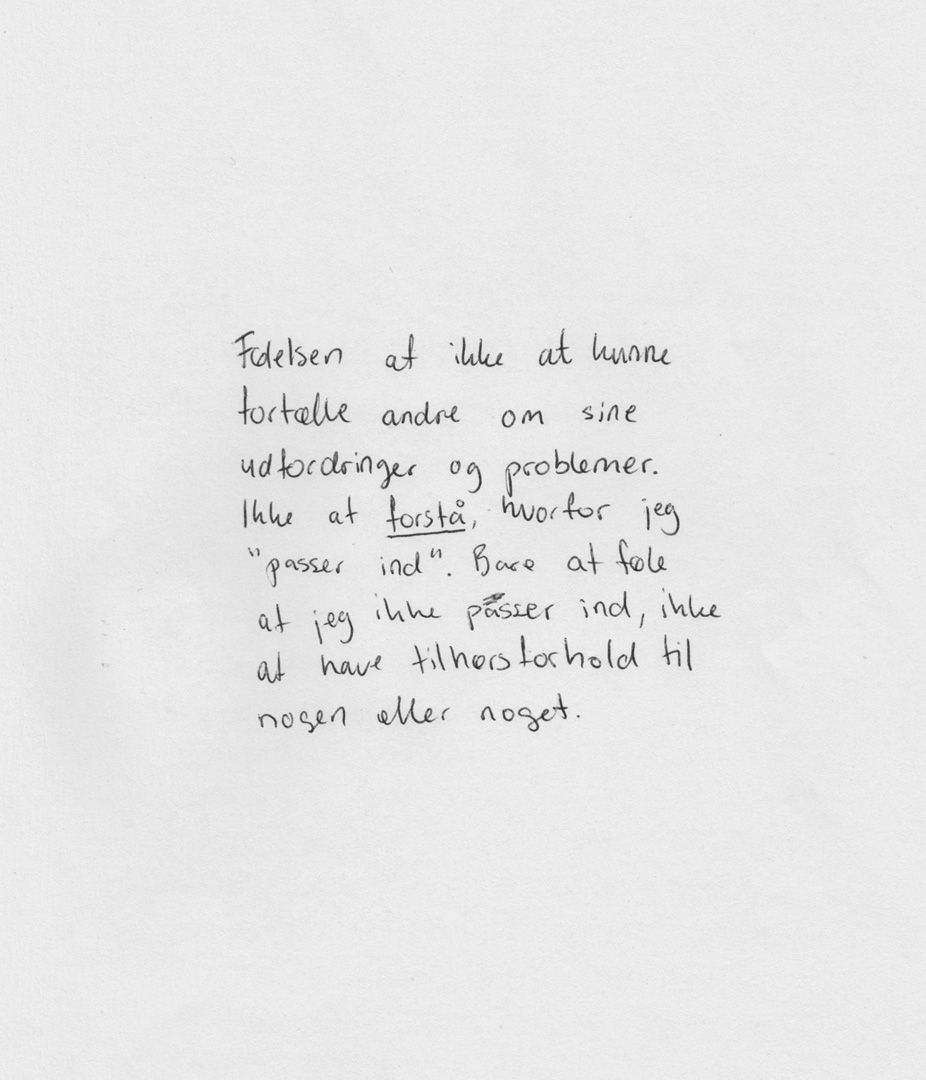 Følelsen af ikke at kunne
fortælle andre om sine
udfordringer og problemer.
Ikke at forstå, hvorfor jeg
"passer ind". Bare at føle
at jeg ikke passer ind, ikke
at have tilhørsforhold til
nogen eller noget.